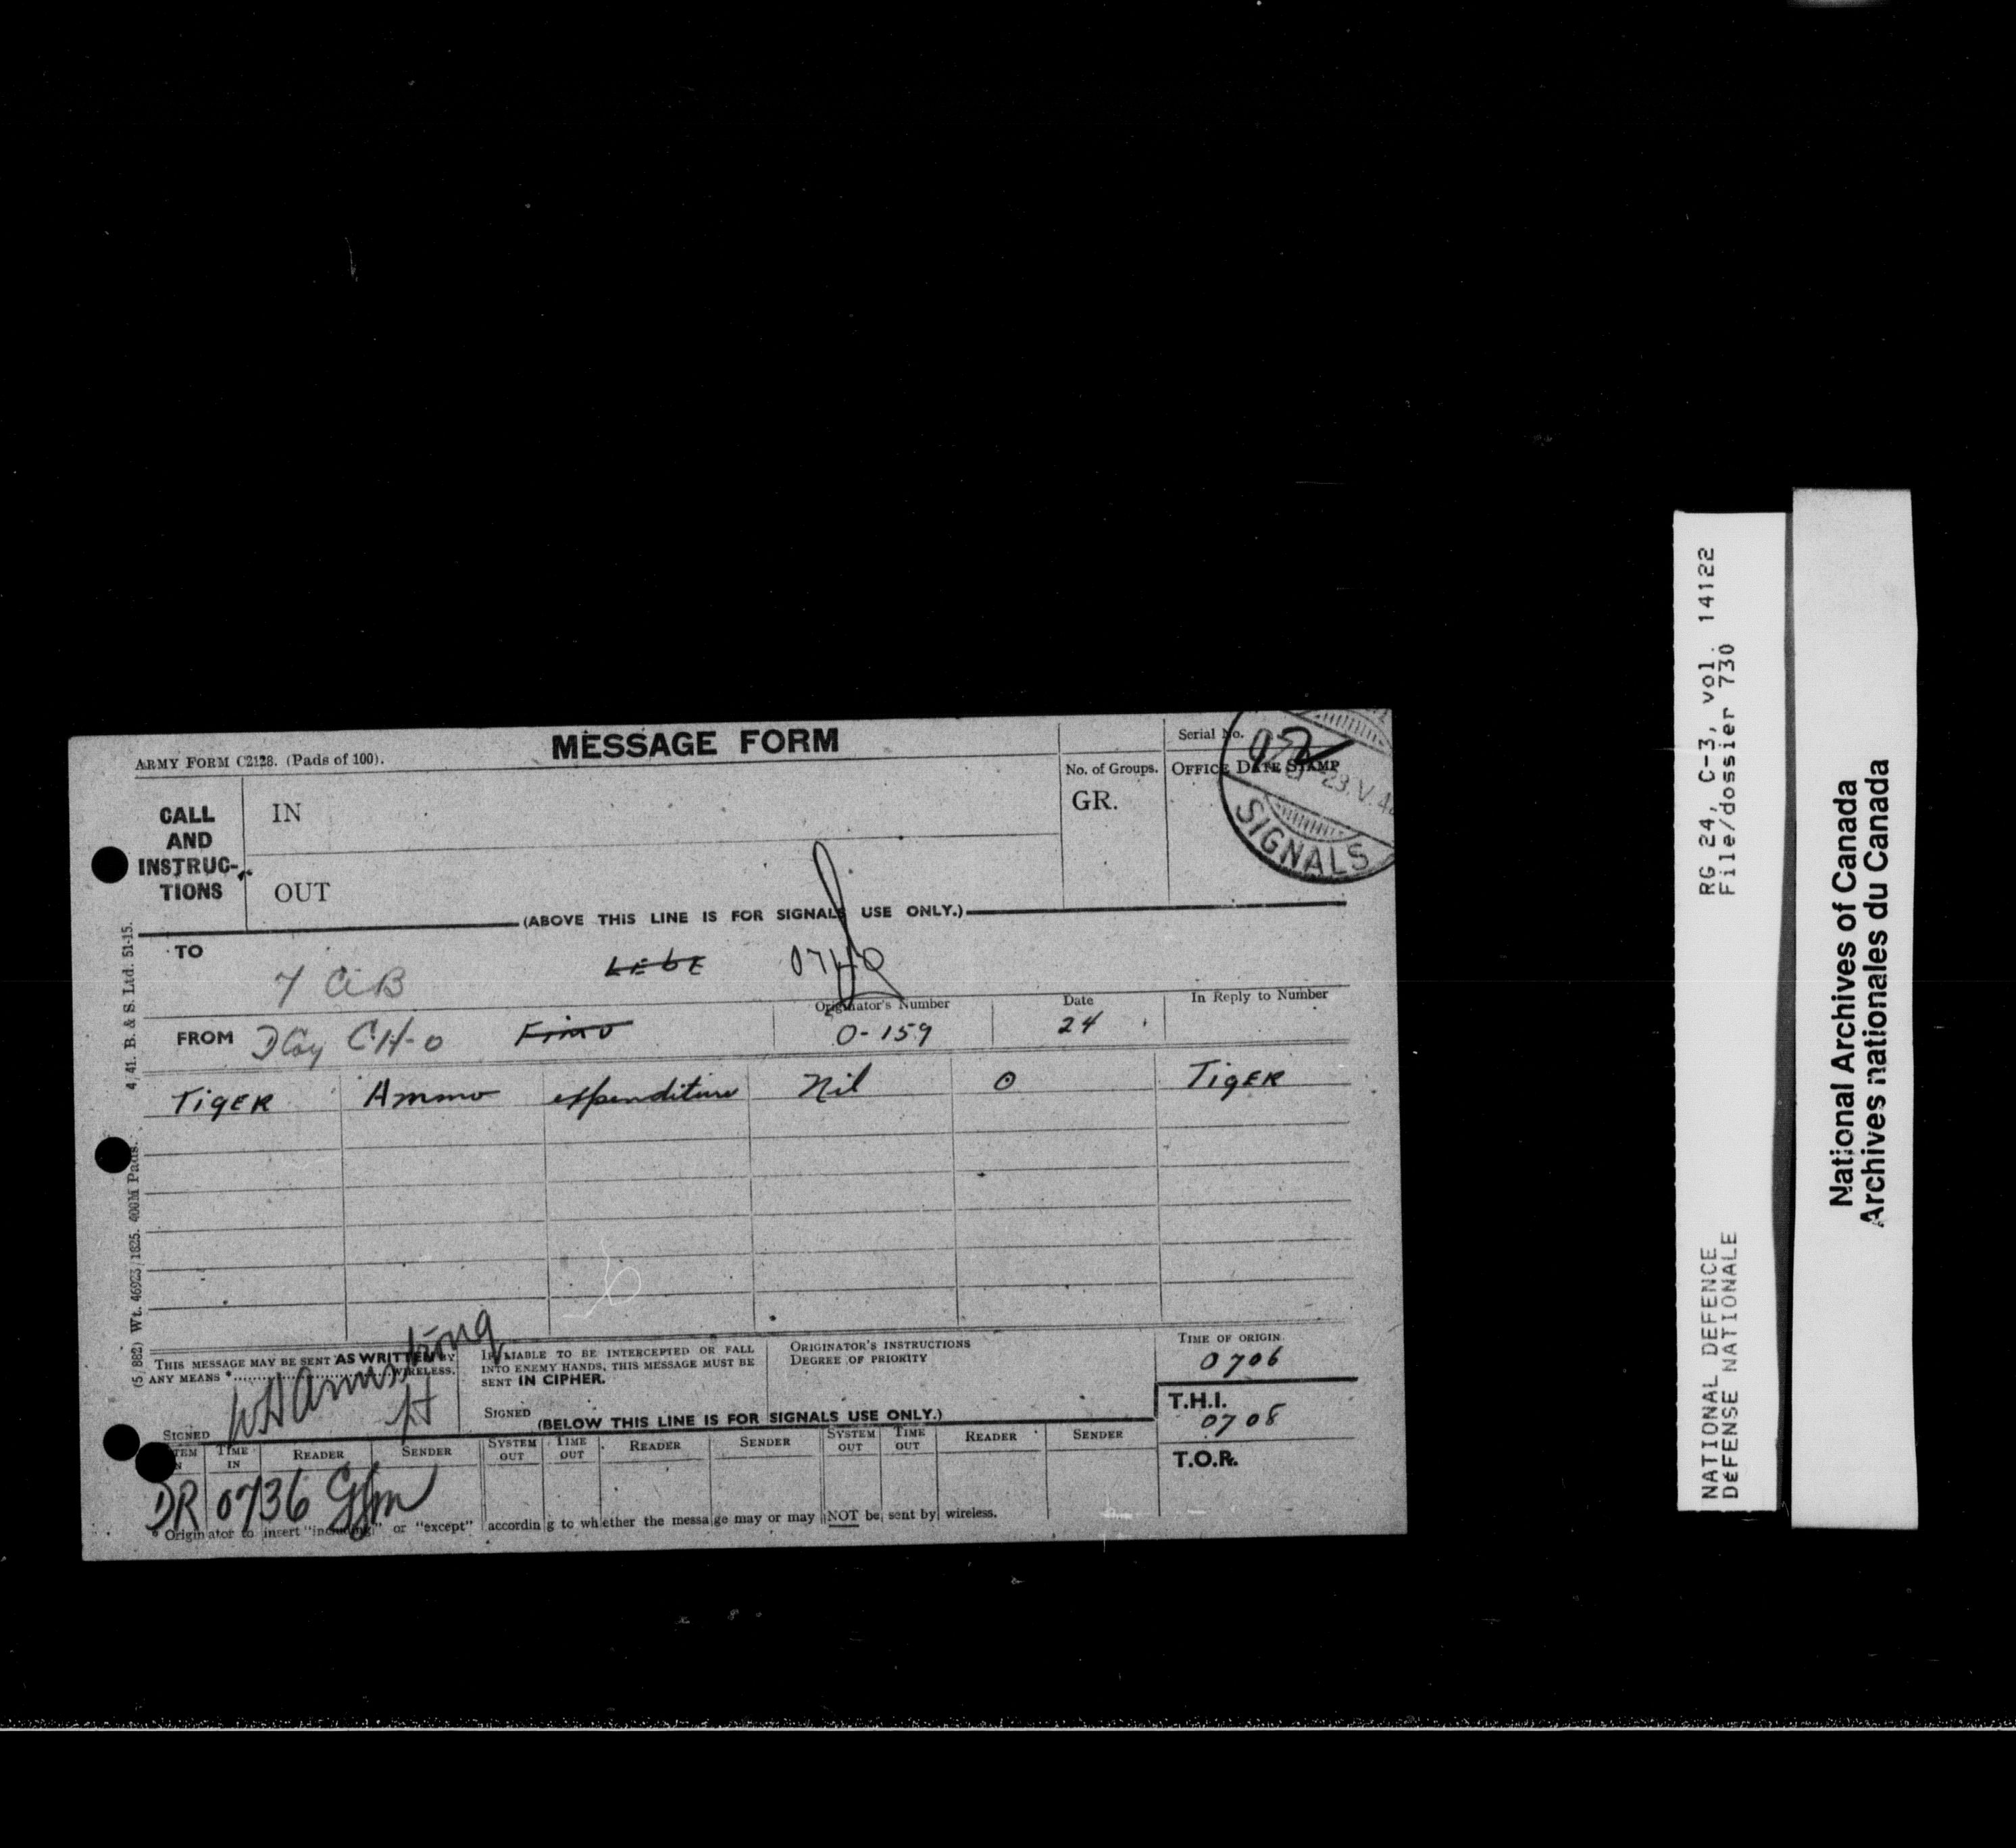 MESSAGE FORM
ARMY FORM C2128. (Pads of 100).
Serial No.
No. of Groups.
OFFICE DATE STAMP
GR.
23.V.4
SIGNALS
CALL AND INSTRUC-TIONS
IN
OUT
(ABOVE THIS LINE IS FOR SIGNALS USE ONLY.)
TO
7 CIB
0740
Originator's Number
Date
In Reply to Number
FROM
D Coy CH-O
O-159
24
TIGER Ammo expenditure Nil O TIGER
THIS MESSAGE MAY BE SENT AS WRITTEN BY
ANY MEANS * WIRELESS.
WHArmstrong
SIGNED
IF LIABLE TO BE INTERCEPTED OR FALL
INTO ENEMY HANDS, THIS MESSAGE MUST BE
SENT IN CIPHER.
SIGNED
ORIGINATOR'S INSTRUCTIONS
DEGREE OF PRIORITY
TIME OF ORIGIN
0706
T.H.I.
0708
T.O.R.
(BELOW THIS LINE IS FOR SIGNALS USE ONLY.)
TIME IN READER SENDER SYSTEM OUT TIME OUT READER SENDER SYSTEM OUT TIME OUT READER SENDER
DR 0736
* Originator to insert "including" or "except" according to whether the message may or may NOT be sent by wireless.
(5 882) Wt. 46923/1625. 400M Pads. 4/41. B. & S. Ltd. 51-15.
RG 24, C-3, vol. 14122
File/dossier 730
NATIONAL DEFENCE
DÉFENSE NATIONALE
National Archives of Canada
Archives nationales du Canada